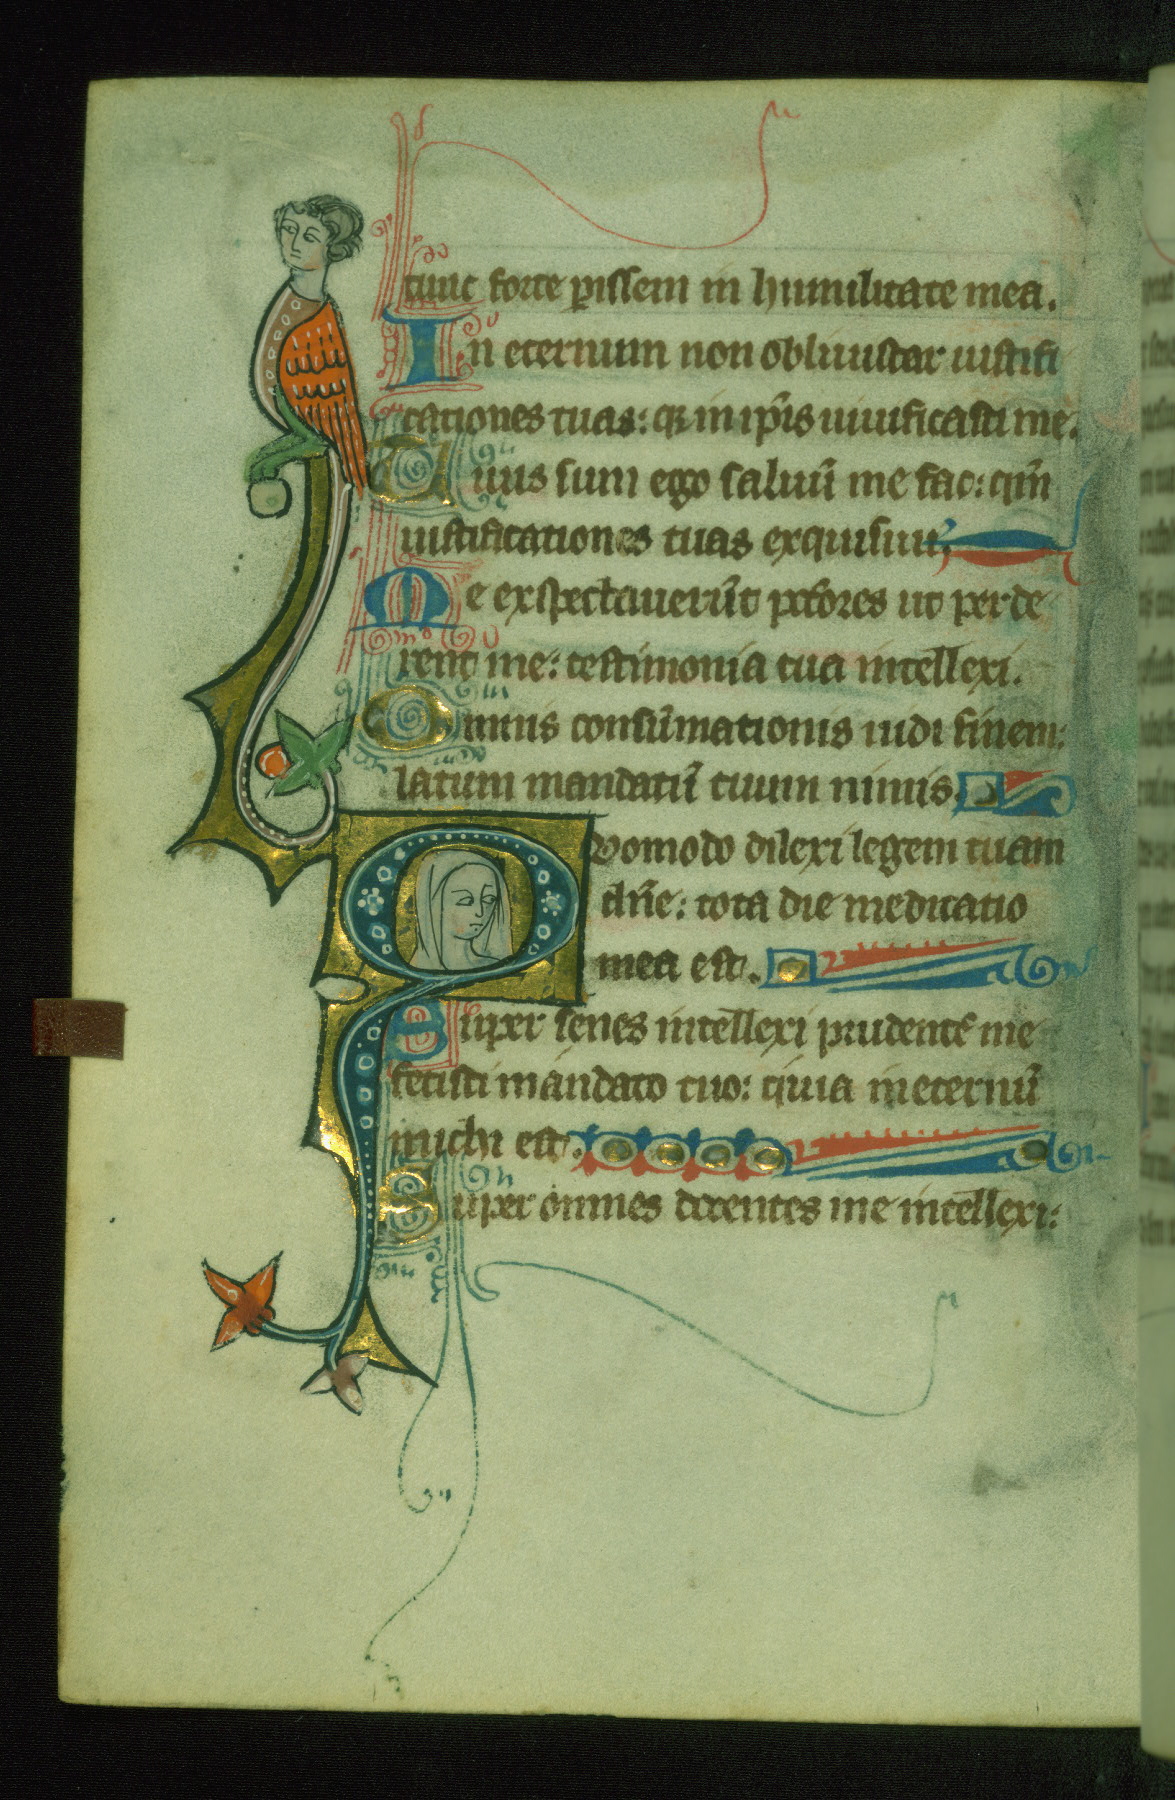 tunc forte p̱issem in humilitate mea.
In eternum non obliuiscar iustifi
cationes tuas: q̛ in ip̃is uiuificasti me.
Tuus sum ego saluũ me fac: qm̃
iustificationes tuas exquisiui.
Me exspectauerũt peccores ut perde
rent me: testimonia tua intellexi.
Omnis consũmationis uidi finem:
latum mandatũ tuum nimis.
Quomodo dilexi legem tuam
dñe: tota die meditatio
mea est.
Super senes intellexi prudentẽ me
fecisti mandato tuo: quia in eternũ
michi est.
Super omnes docentes me intellexi: